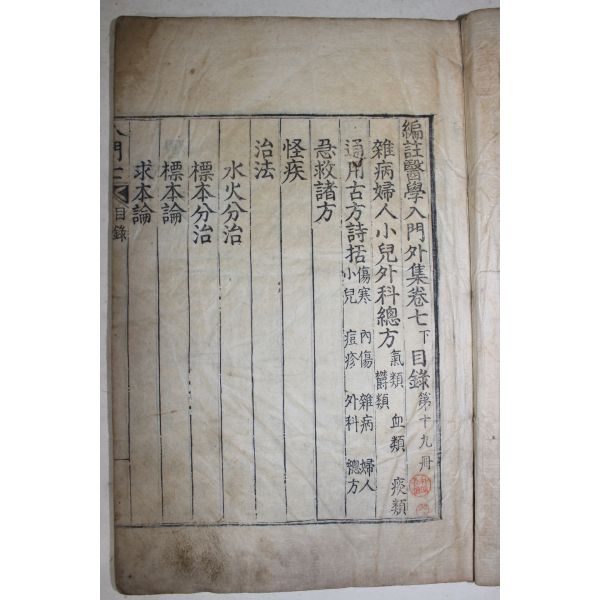 編註醫學入門外集卷七下目錄 第十九冊
雜病婦人小兒外科總方 氣類 血類 痰類
欝類
通用古方詩括 傷寒 內傷 雜病 婦人
小兒 痘疹 外科 總方
急救諸方
怪疾
治法
水火分治
標本分治
標本論
求本論
門七 目錄